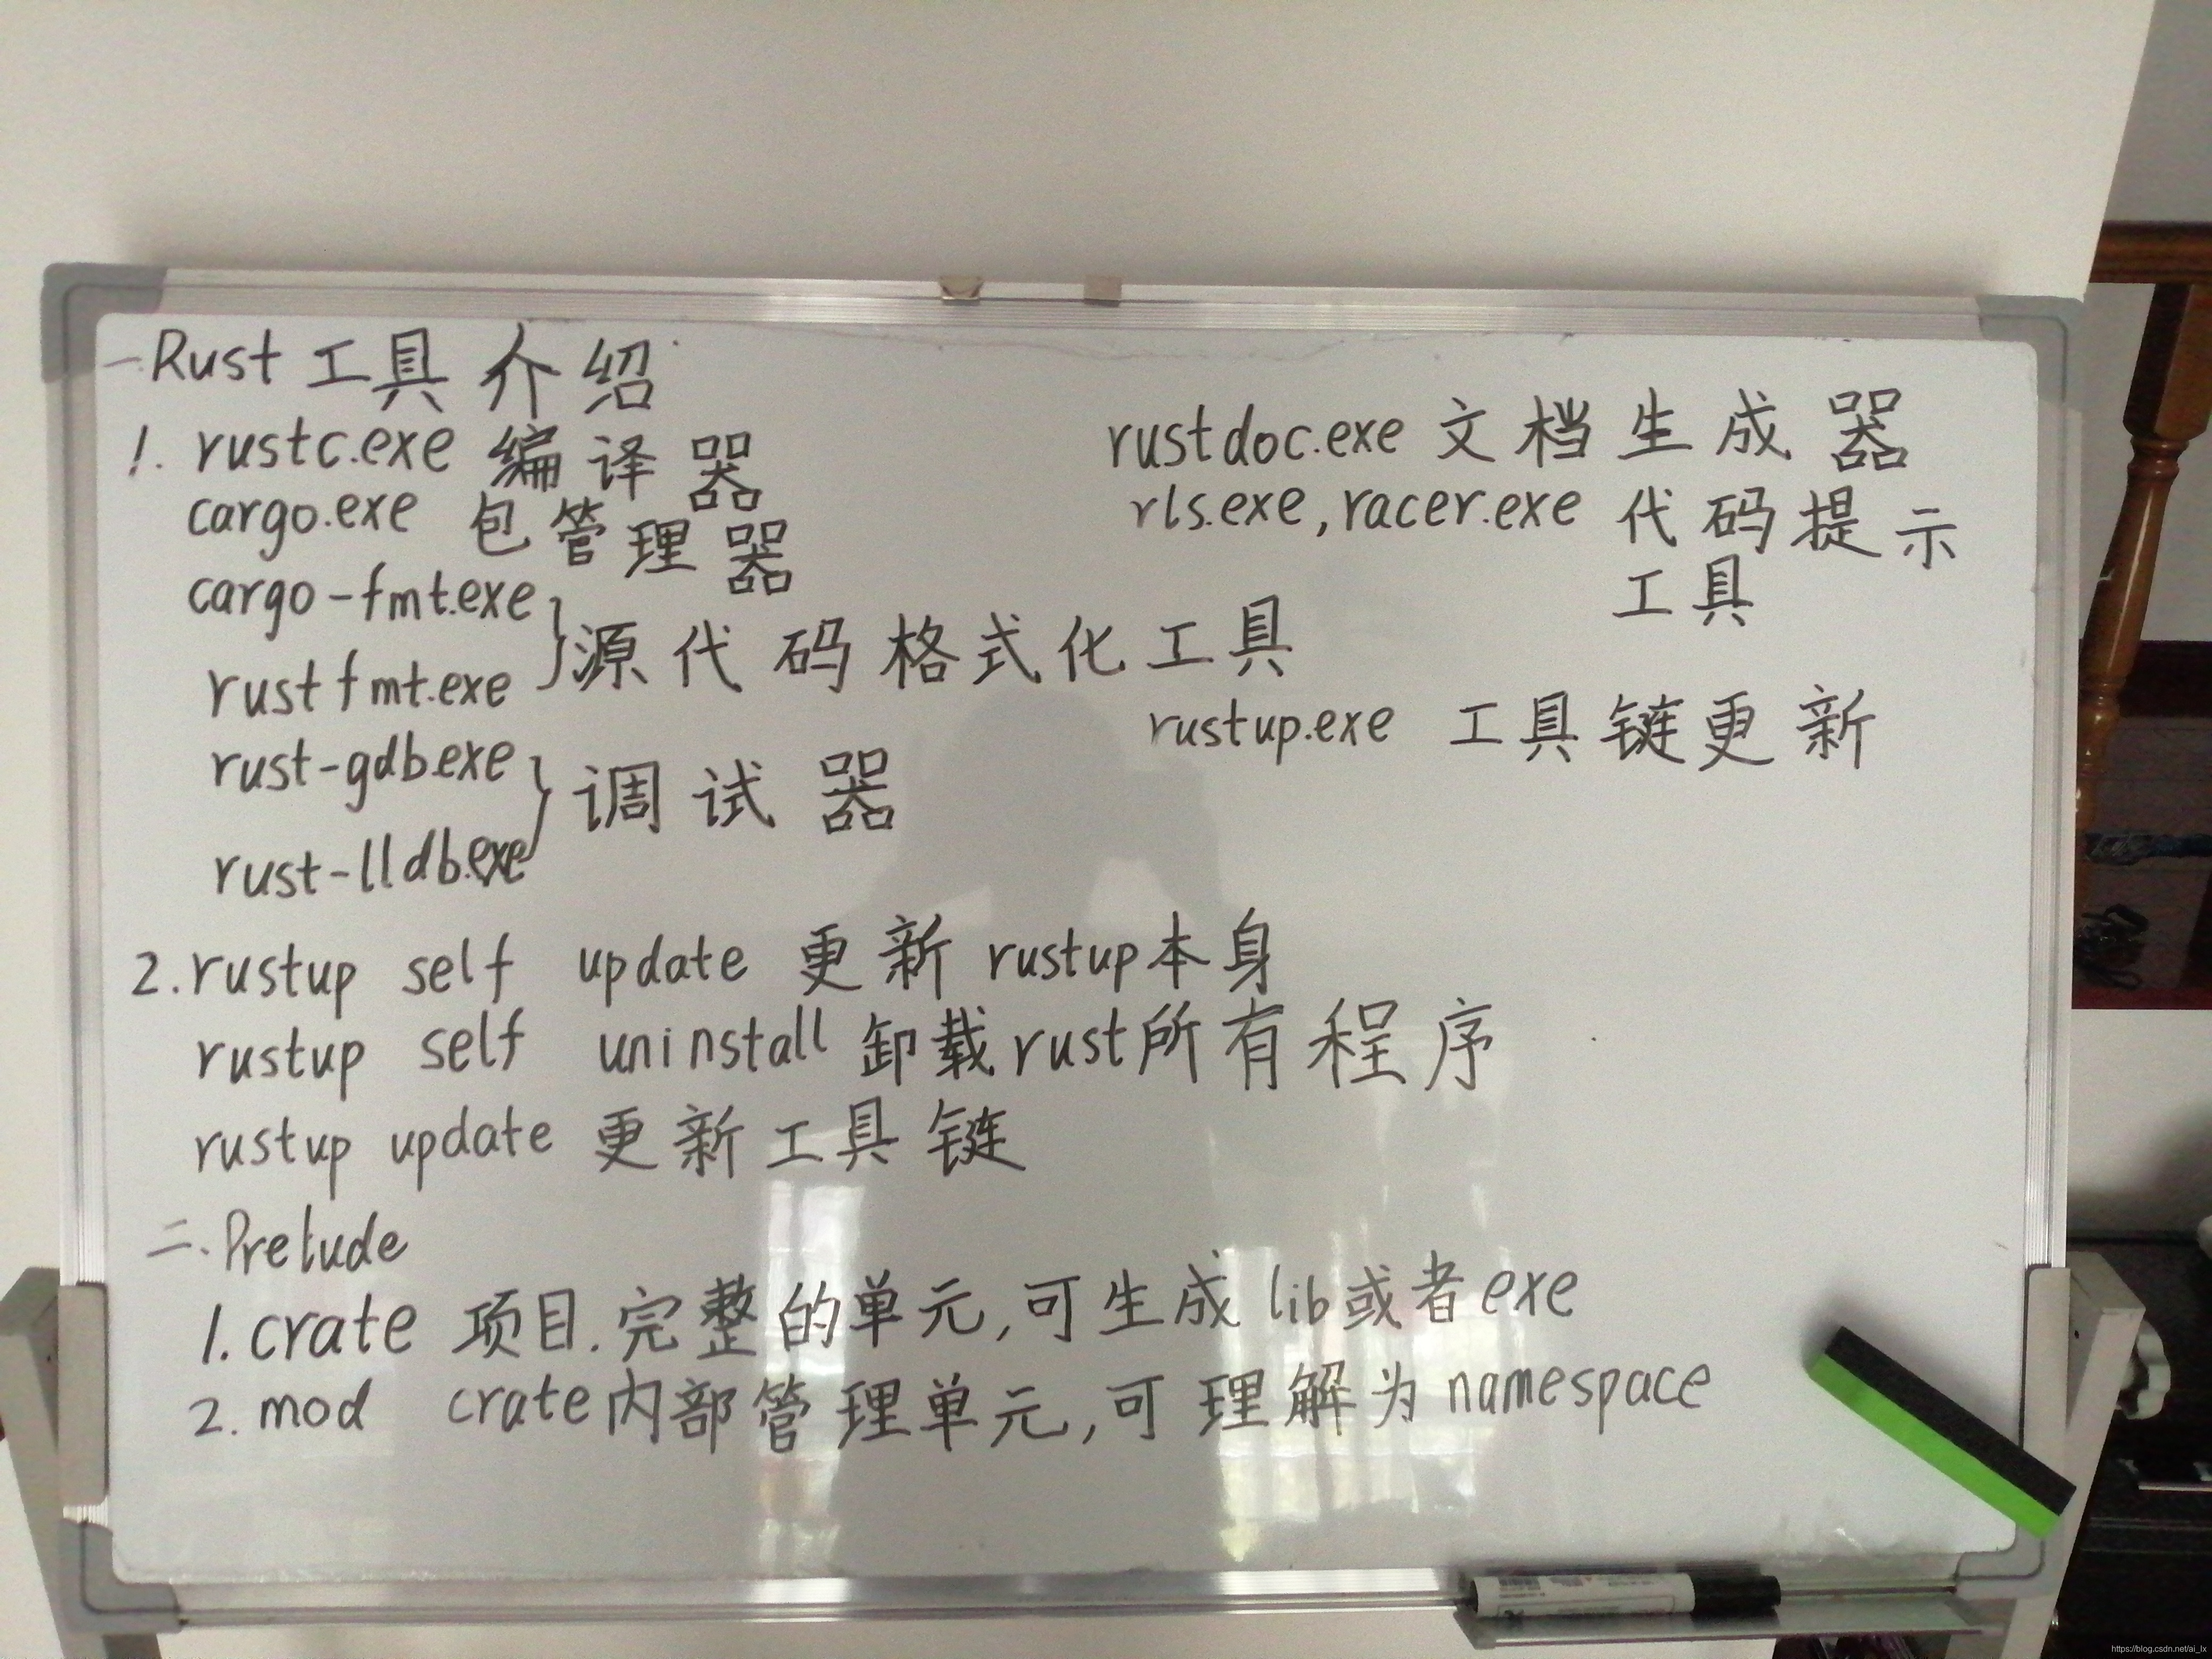 一.Rust 工具介绍
1. rustc.exe 编译器
cargo.exe 包管理器
cargo-fmt.exe
rustfmt.exe
} 源代码格式化工具
rust-gdb.exe
rust-lldb.exe
} 调试器
rustdoc.exe 文档生成器
rls.exe, racer.exe 代码提示
工具
rustup.exe 工具链更新
2. rustup self update 更新 rustup本身
rustup self uninstall 卸载rust所有程序
rustup update 更新工具链
二、Prelude
1. crate 项目.完整的单元,可生成lib或者exe
2. mod crate内部管理单元,可理解为namespace
https://blog.csdn.net/ai_lx